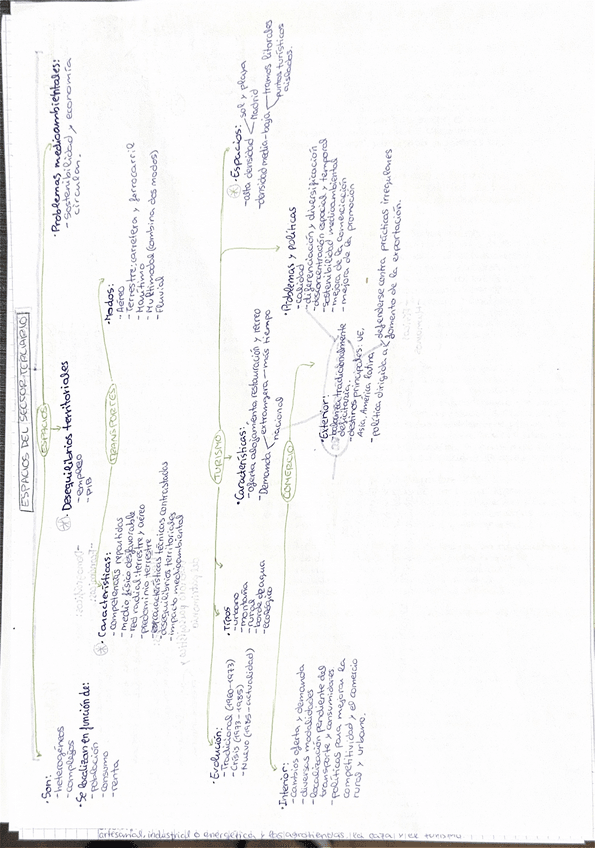 ESPACIOS DEL SECTOR TERCIARIO
ESPACIOS
· Son:
- heterogéneos
- complejos
· Se localizan en función de:
- población
- consumo
- renta
· Desequilibrios territoriales
- empleo
- PIB
· Problemas medioambientales:
- sostenibilidad y economía
circular.
TRANSPORTES
· Características:
- competencias repartidas
- medio físico desfavorable
- red radial: terrestre y aéreo
- predominio terrestre
- características técnicas contrastadas
- desequilibrios territoriales
- impacto medioambiental
· Modos:
- Aéreo
- Terrestre: carretera y ferrocarril
- Marítimo
- Multimodal (combina dos modos)
- Fluvial
TURISMO
· Evolución:
- Tradicional (1960-1973)
- Crisis (1973-1985)
- Nuevo (1985-actualidad)
· Tipos
- urbano
- montaña
- rural
- borde de agua
- ecológico
· Características:
- oferta alojamiento restauración y recreo
- Demanda extranjera - más tiempo
nacional
· Problemas y políticas
- calidad
- diferenciación y diversificación
- desconcentración espacial y temporal
- sostenibilidad medioambiental
- mejora de la comercialización
- mejora de la promoción
· Espacios:
- alta densidad sol y playa
Madrid
- densidad media-baja tramos litorales
puntos turísticos
aislados.
COMERCIO
· Interior:
- cambios oferta y demanda
- diversas modalidades
- localización pendiente del
transporte y consumidores
- políticas para mejorar la
competitividad y el comercio
rural y urbano.
· Exterior:
- balanza tradicionalmente
deficitaria.
- destinos principales: UE,
Asia, América latina,
- política dirigida a defenderse contra prácticas irregulares
fomento de la exportación.
artesanal, industrial o energética y